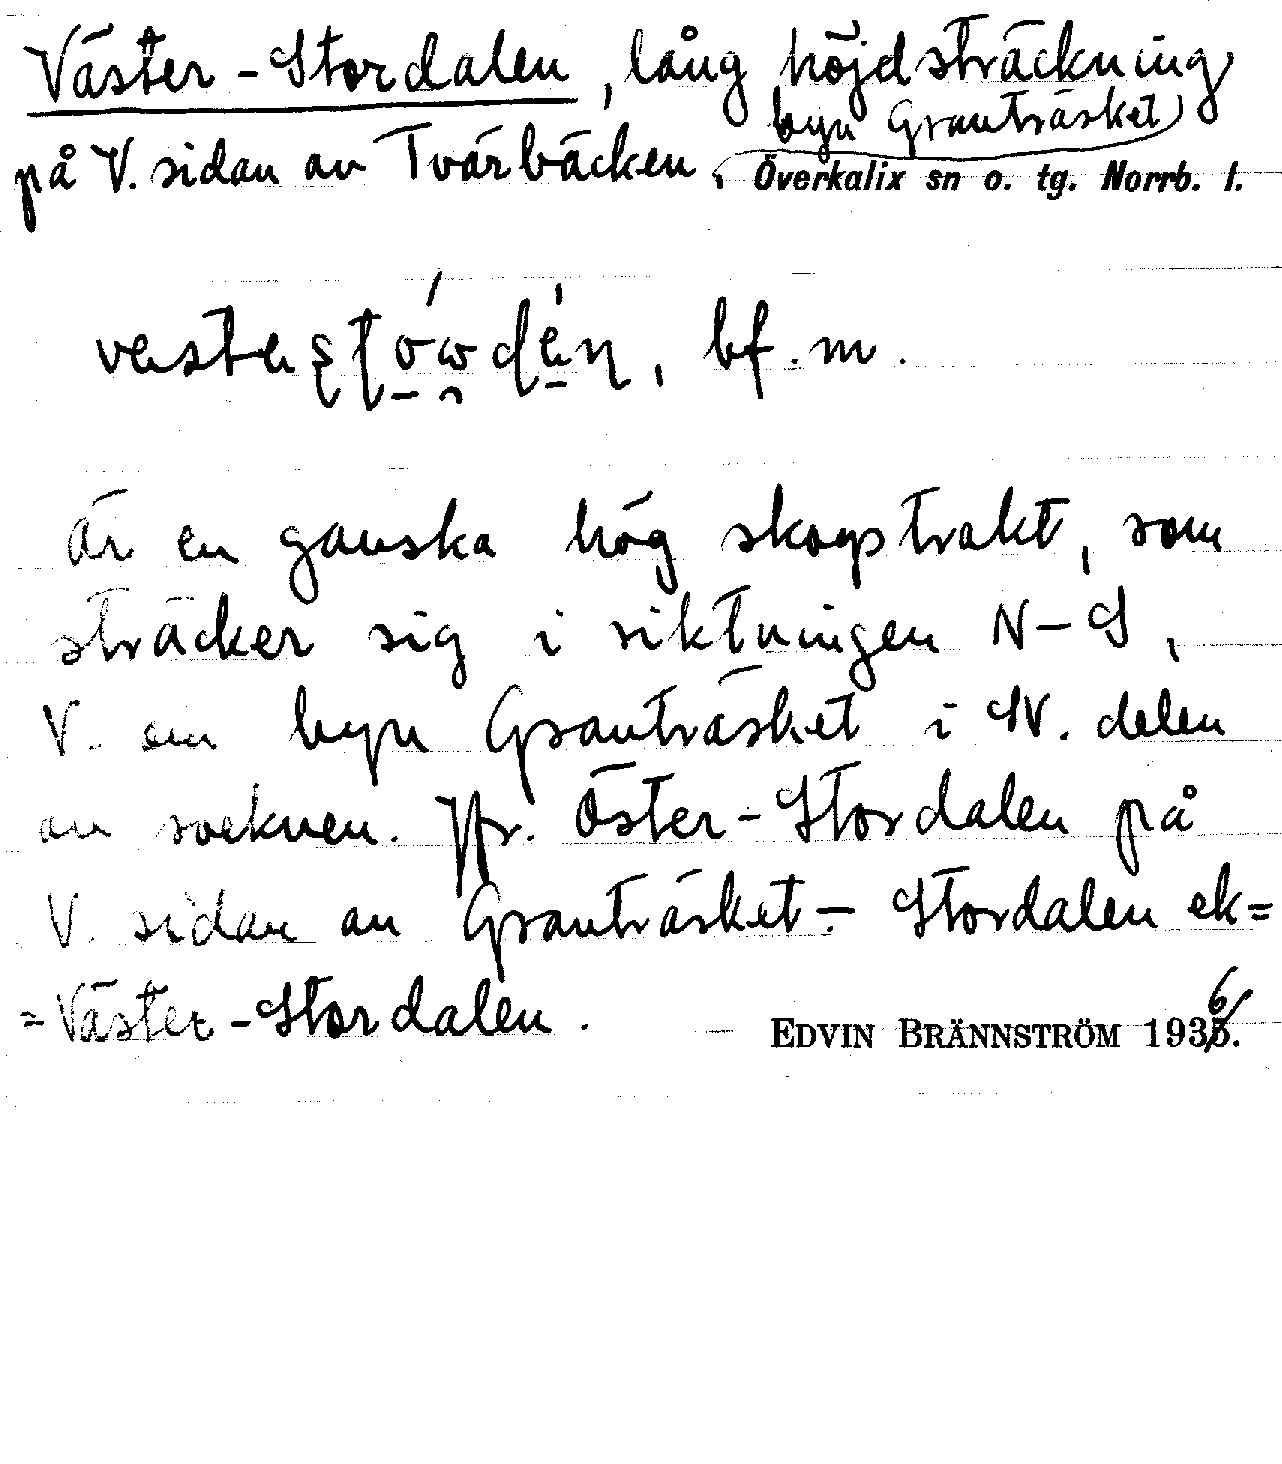 Väster-Stordalen, lång höjdsträckning
byn Granträsket
på V. sidan av Tvärbäcken, Överkalix sn o. tg. Norrb. l.
bf. m.
är en ganska hög skogstrakt, som
sträcker sig i riktningen N-S,
V. om byn Granträsket i SV. delen
av socknen. Jfr. Öster-Stordalen på
V. sidan av Granträsket - Stordalen ek=
=Väster-Stordalen.
EDVIN BRÄNNSTRÖM 1936.